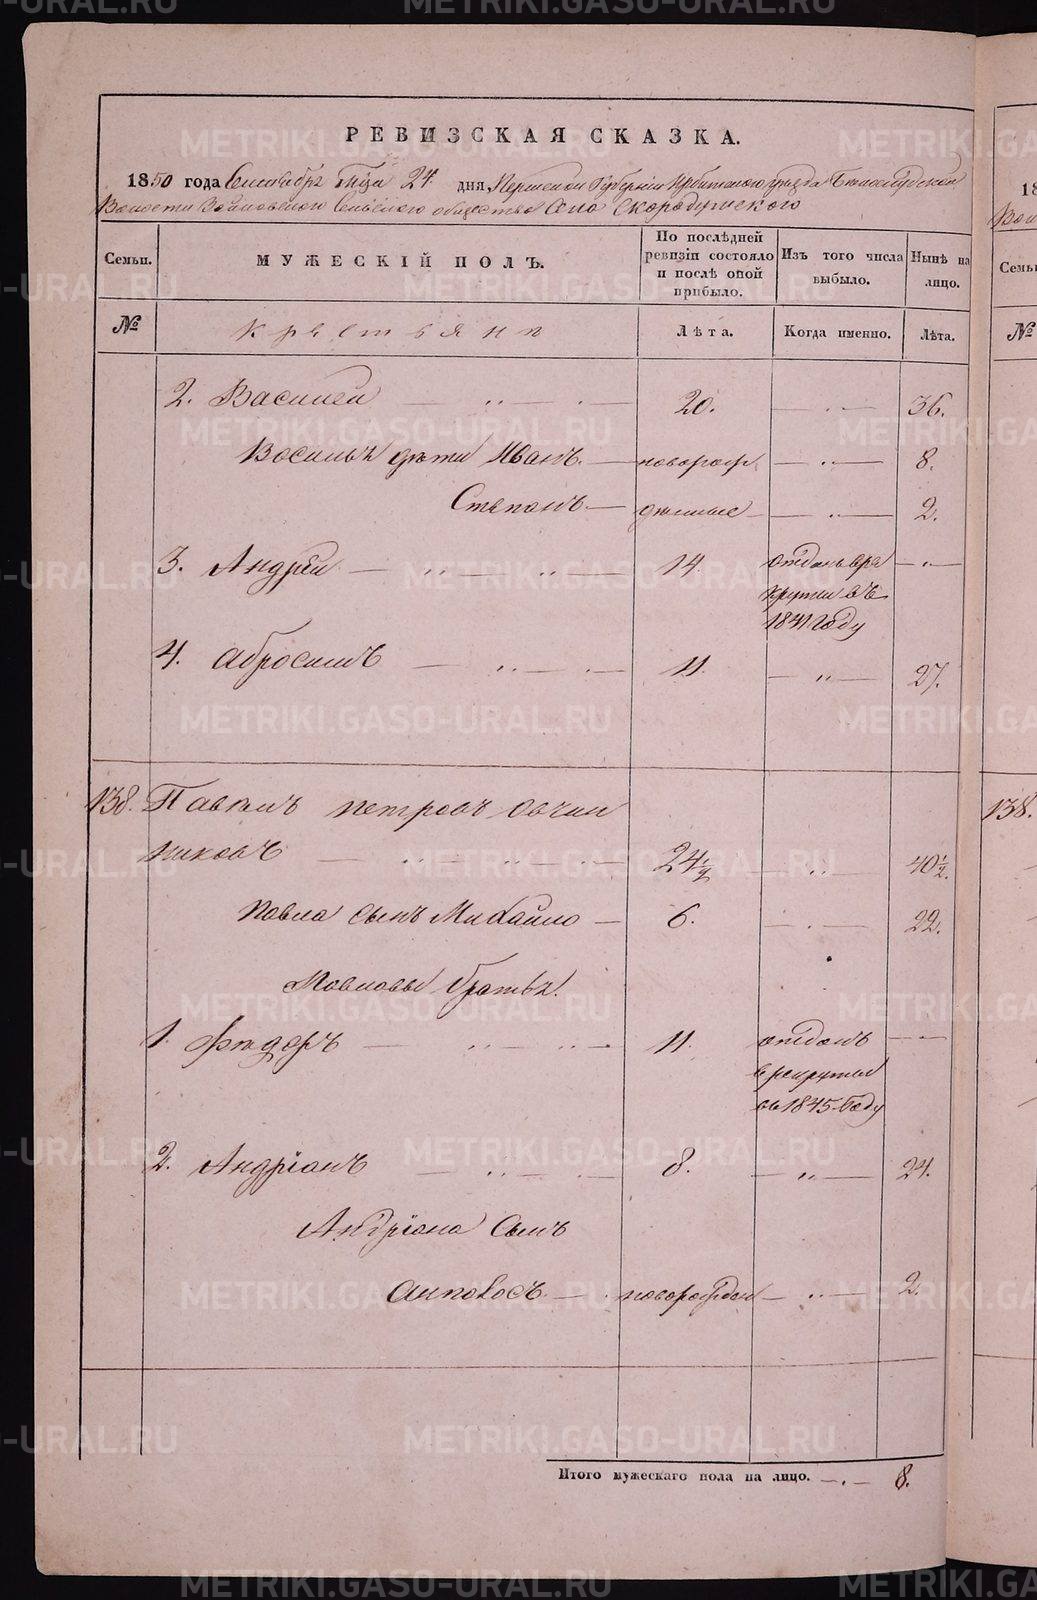 РЕВИЗСКАЯ СКАЗКА.
1850 года Сентября м-ца 24 дня, Пермской Губернии Ирбитскаго уезда Белослудской
Волости Зайковского Сельского общества Села Скородумского
Семьи. МУЖЕСКІЙ ПОЛЪ. По послѣдней ревизіи состояло и послѣ оной прибыло. Изъ того числа выбыло. Нынѣ на лицо.
№ Крестьянъ Лѣта. Когда именно. Лѣта.
2. Василей — „ — 20. — „ — 36.
Василья дѣти Иванъ. — новорож — „ — 8.
Степанъ — денные — „ — 2.
3. Андрей — „ — „ — 14 отданъ вре — „ —
крути въ
1841 году
4. Абросимъ — „ — 11. — „ — 27.
138. Павелъ Петровъ Овчин
никовъ — „ — „ — 24½ „ 40½.
Павла сынъ Михайло — 6. — „ — 22.
Павловы братья.
1. Фѣдоръ — „ — „ — 11. отданъ — —
в рекруты
въ 1845 году
2. Андріанъ — „ — 8. — „ — 24.
Андріана сынъ
— новорожден — „ — 2.
Итого мужескаго пола на лицо. — „ — 8.
METRIKI.GASO-URAL.RU